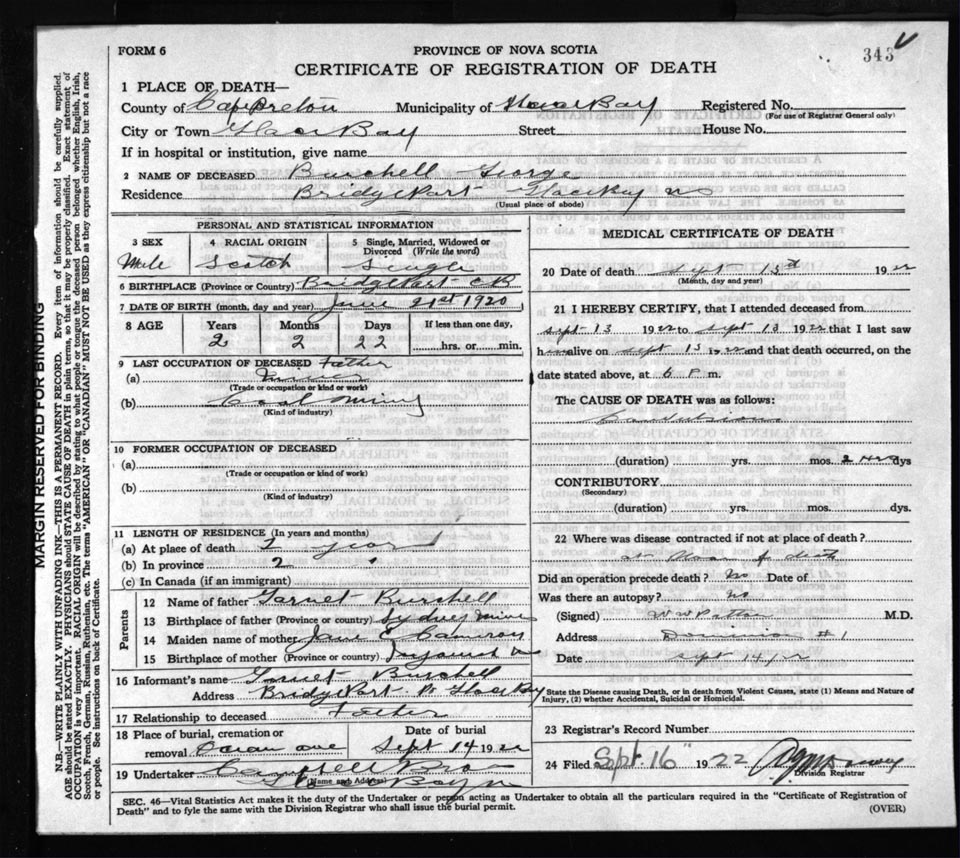 FORM 6
PROVINCE OF NOVA SCOTIA
343
CERTIFICATE OF REGISTRATION OF DEATH
1 PLACE OF DEATH—
County of Cape Breton Municipality of Glace Bay Registered No.
(For use of Registrar General only)
City or Town Glace Bay Street House No.
If in hospital or institution, give name
2 NAME OF DECEASED Burchell George
Residence BridgePort Glace Bay NS
(Usual place of abode)
PERSONAL AND STATISTICAL INFORMATION
3 SEX 4 RACIAL ORIGIN 5 Single, Married, Widowed or Divorced (Write the word)
Male Scotch Single
6 BIRTHPLACE (Province or Country) BridgePort CB
7 DATE OF BIRTH (month, day and year) June 21st 1920
8 AGE Years Months Days If less than one day,
2 2 22 hrs. or min.
9 LAST OCCUPATION OF DECEASED Father
(a)
(Trade or occupation or kind or work)
(b) Coal Mining
(Kind of industry)
10 FORMER OCCUPATION OF DECEASED
(a)
(Trade or occupation or kind of work)
(b)
(Kind of industry)
11 LENGTH OF RESIDENCE (In years and months)
(a) At place of death 2 years
(b) In province 2 "
(c) In Canada (if an immigrant)
Parents
12 Name of father Garnet Burchell
13 Birthplace of father (Province or country) Sydney Mines
14 Maiden name of mother Cameron
15 Birthplace of mother (Province or country)
16 Informant's name Garnet Burchell
Address BridgePort Glace Bay
17 Relationship to deceased Father
18 Place of burial, cremation or Date of burial
removal Sept 14 1922
19 Undertaker
(Name and Address)
Glace Bay
MEDICAL CERTIFICATE OF DEATH
20 Date of death Sept 13th 1922
(Month, day and year)
21 I HEREBY CERTIFY, that I attended deceased from
Sept 13 1922 to Sept 13 1922 that I last saw
him alive on Sept 13 1922 and that death occurred, on the
date stated above, at 6 P. m.
The CAUSE OF DEATH was as follows:
Convulsions
(duration) yrs. mos. 2 Hrs dys
CONTRIBUTORY
(Secondary)
(duration) yrs. mos. dys.
22 Where was disease contracted if not at place of death?
at place of death
Did an operation precede death? No Date of
Was there an autopsy? No
(Signed) M.D.
Address Dominion #1
Date Sept 14/22
State the Disease causing Death, or in death from Violent Causes, state (1) Means and Nature of
Injury, (2) whether Accidental, Suicidal or Homicidal.
23 Registrar's Record Number
24 Filed Sept 16 1922
Division Registrar
SEC. 46—Vital Statistics Act makes it the duty of the Undertaker or person acting as Undertaker to obtain all the particulars required in the "Certificate of Registration of
Death" and to fyle the same with the Division Registrar who shall issue the burial permit. (OVER)
MARGIN RESERVED FOR BINDING
N.B.—WRITE PLAINLY WITH UNFADING INK—THIS IS A PERMANENT RECORD. Every item of information should be carefully supplied.
AGE should be stated EXACTLY. PHYSICIANS should STATE CAUSE OF DEATH in plain terms, so that it may be properly classified. Exact statement of
OCCUPATION is very important. RACIAL ORIGIN will be described by stating to what people or tongue the deceased person belonged whether English, Irish,
Scotch, French, German, Russian, Ruthenian, etc. The terms "AMERICAN" OR "CANADIAN" MUST NOT BE USED as they express citizenship but not a race
or people. See instructions on back of Certificate.